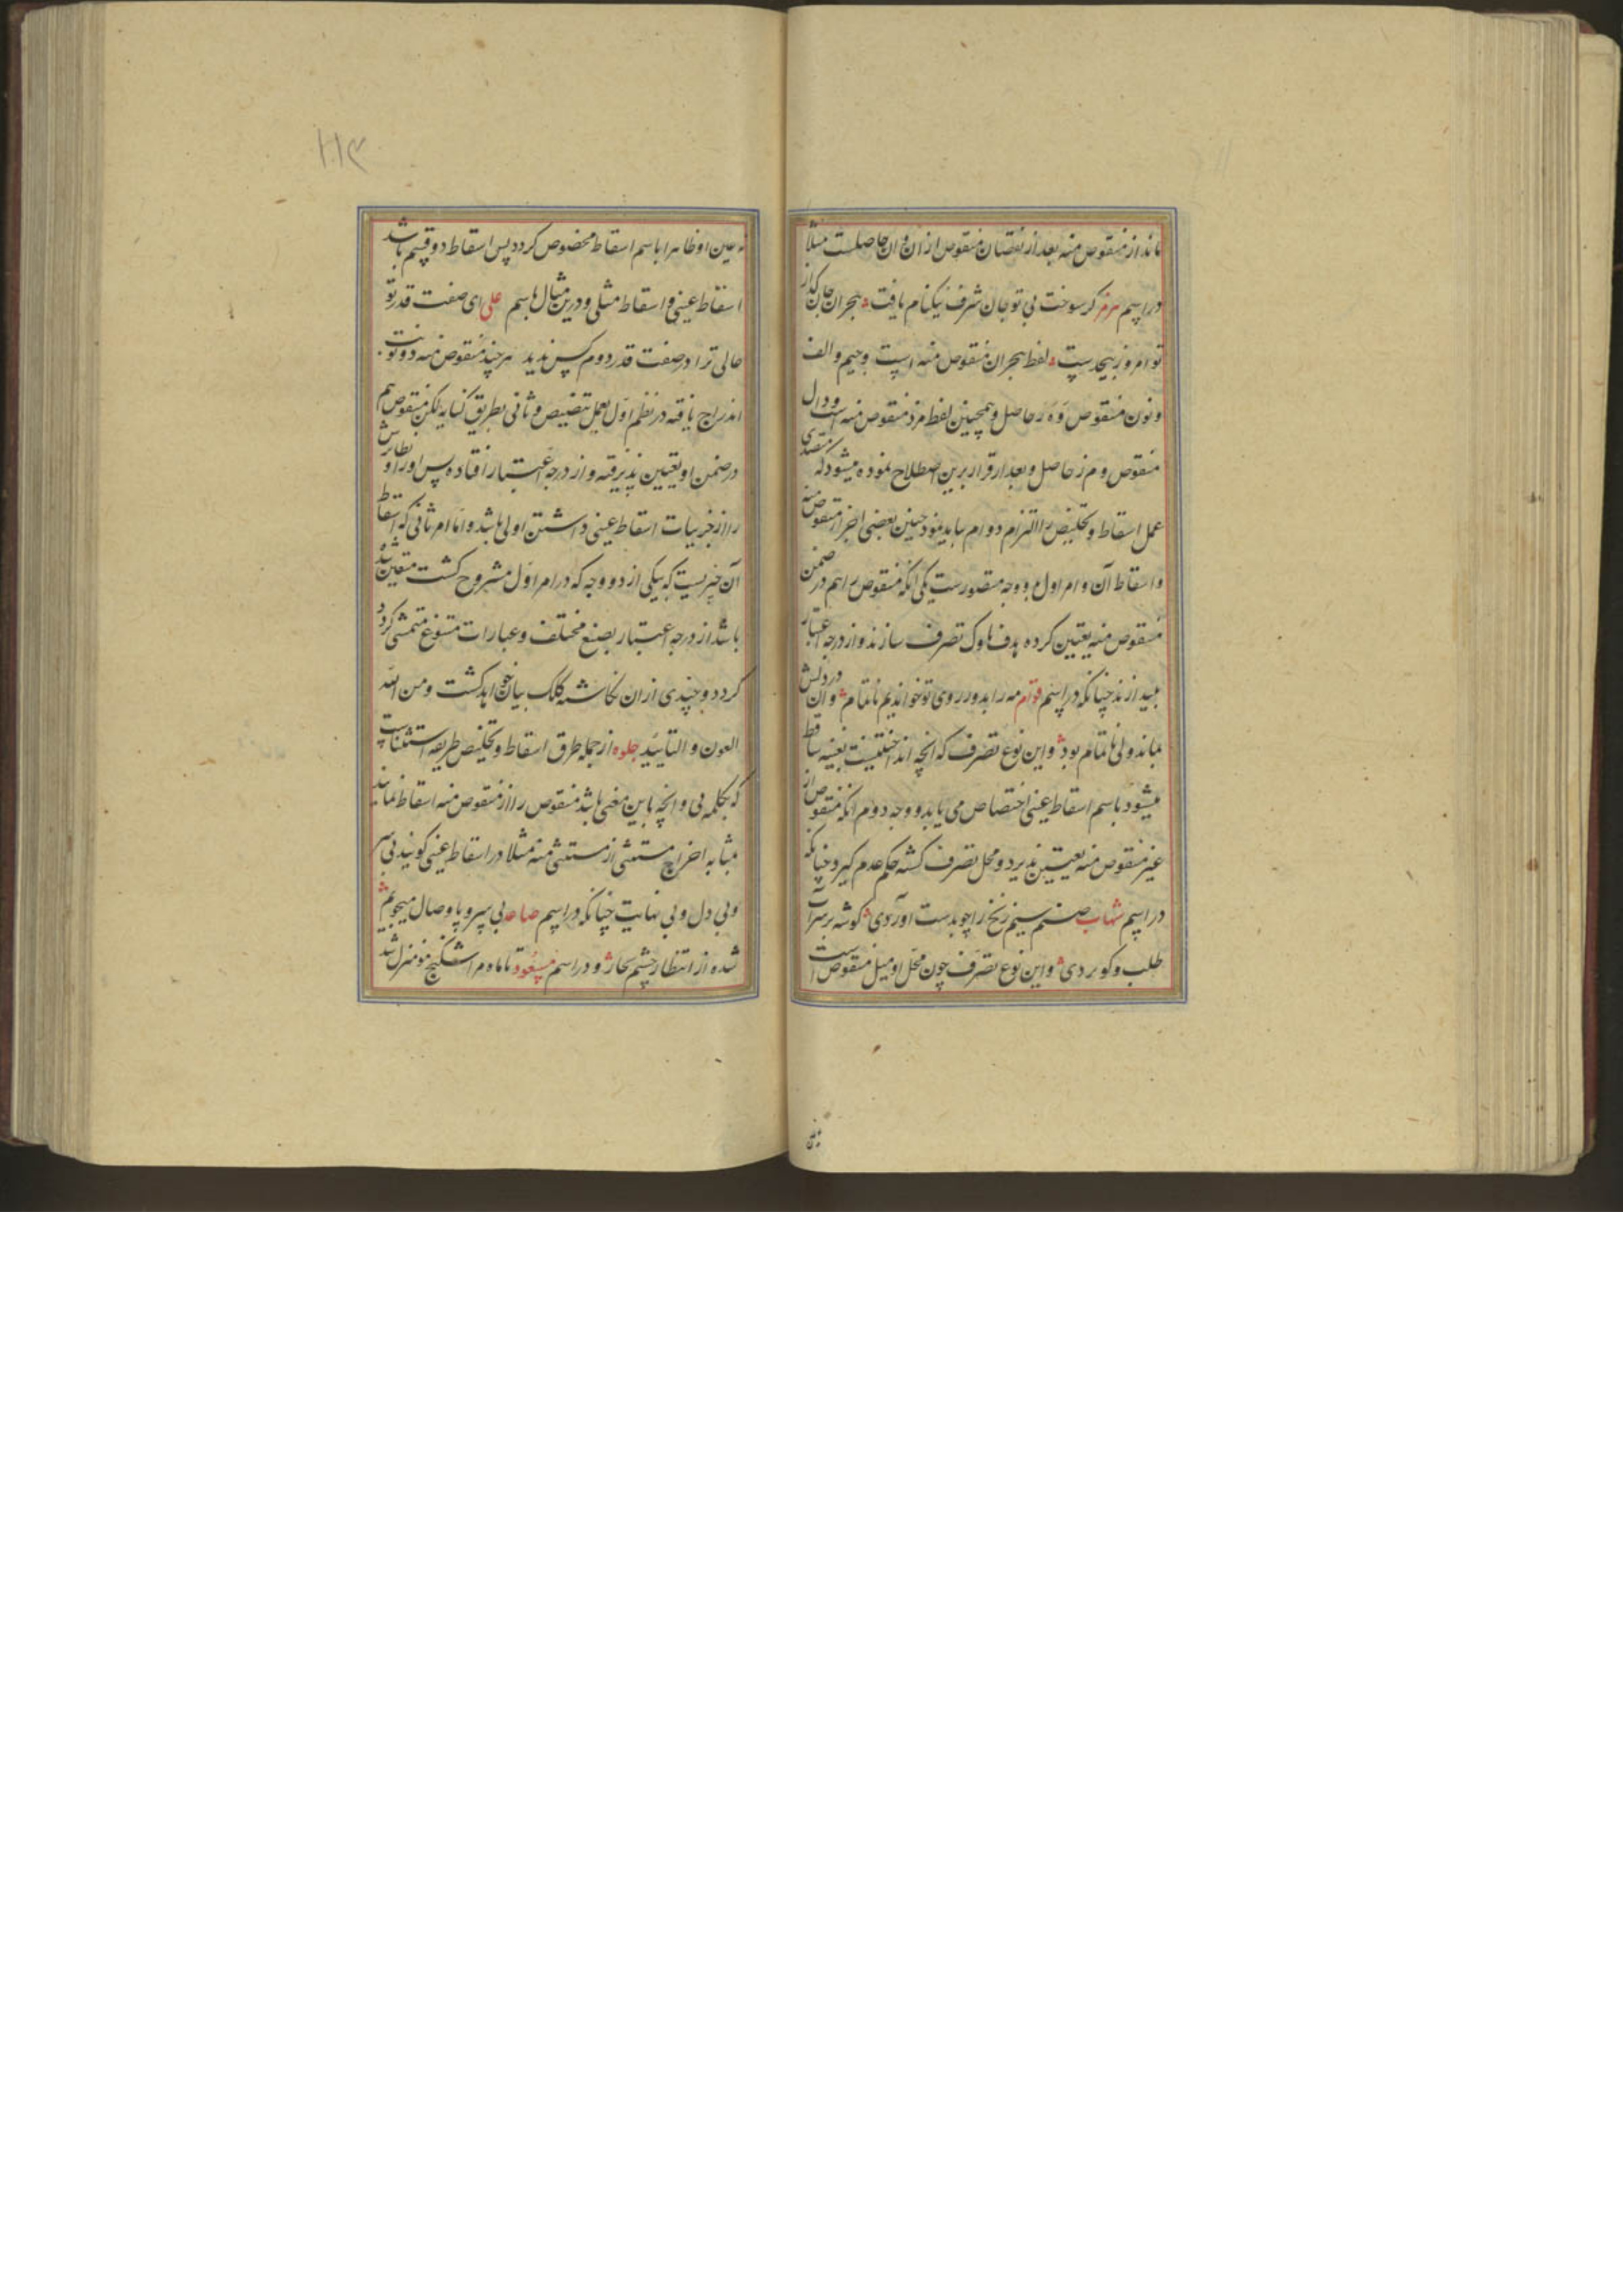 ماند از منقوص منه بعد از نقصان منقوص ازان وان حاصلست مثلا
در اسم هرمز کر سوخت بی تو جان شرف نیکنام یافت هجران جان کداز
تو امروز بیحدست لفظ هجران منقوص منه است وجیم والف
ونون منقوص و ه ر حاصل وهمچنین لفظ مزد منقوص منه است ودال
منقوص و م ز حاصل وبعد از قرار برین اصطلاح نموده میشود که متصدی
عمل اسقاط وتخلیص را التزام دو امر باید نمود تعیین بعضی اجزا از منقوص منه
واسقاط آن وامر اول بدو وجه متصورست یکی انکه منقوص را هم در ضمن
منقوص منه تعیین کرده هدف ناوک تصرف سازند واز درجه اعتبار
بیندازند چنانکه در اسم قوام مه را بدور روی تو خواندیم ناتمام وان در دلش
بماند ولی ناتمام بود واین نوع تصرف که انچه انداختنیست بعینه ساقط
میشود باسم اسقاط عینی اختصاص می یابد ووجه دوم انکه منقوص از
غیر منقوص منه تعیین پذیرد ومحل تصرف کشته حکم عدم کیرد چنانکه
در اسم شهاب صنم سیم زنخ را چو بدست اوردی کوشه بر سر آن
طلب وکو بردی واین نوع تصرف چون محل او مثل منقوص است
نه عین
۱۱۳
نه عین او ظاهرا باسم اسقاط مخصوص کردد پس اسقاط دو قسم باشد
اسقاط عینی واسقاط مثلی ودرین مثال باسم علی ای صفت قدر تو
حالی ترا در صفت قدر دوم کس ندید هر چند منقوص منه دو نوبت
اندراج یافته در نظم اول بعمل تنصیص وثانی بطریق کنایه لیکن منقوص هم
در ضمن او تعیین پذیرفته واز درجه اعتبار افتاده پس اورا ونظایرش
را از جزییات اسقاط عینی داشتن اولی باشد واما امر ثانی که اسقاط
آن جزییست که بیکی از دو وجه که در امر اول مشروح کشت متعین شده
باشد از درجه اعتبار بصیغ مختلف وعبارات متنوع متمشی کردد
کردد وچندی ازان نکاشته کلک بیان خواهد کشت ومن الله
العون والتایید جلوه از جمله طرق اسقاط وتخلیص طریقه استثناست
که بکلمه بی وانچه باین معنی باشد منقوص را از منقوص منه اسقاط نمایند
بمثابه اخراج مستثنی از مستثنی منه مثلا در اسقاط عینی کویند بی سر
وبی دل وبی نهایت چنانکه در اسم صاعد بی سر وپا وصال میجویم
شده از انتظار چشم بحار ودر اسم مسعود تا ماه مرا شکنج مو منزل شد